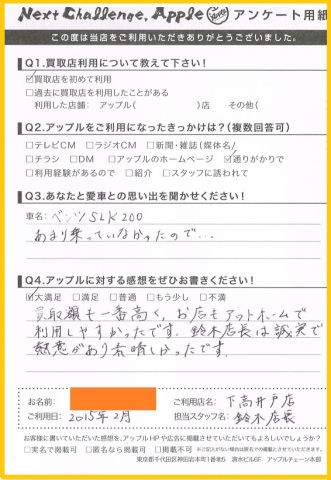 Next Challenge, Apple アンケート用紙
この度は当店をご利用いただきありがとうございました。
Q1.買取店利用について教えて下さい!
☑買取店を初めて利用
□過去に買取店を利用したことがある
利用した店舗: アップル( )店 その他(
Q2.アップルをご利用になったきっかけは?(複数回答可)
□テレビCM □ラジオCM □新聞・雑誌(媒体名/
□チラシ □DM □アップルのホームページ ☑通りがかりで
□利用経験があるので □紹介 □スタッフに誘われて
Q3.あなたと愛車との思い出を聞かせください!
車名: ベンツ SLK200
あまり乗っていなかったので…
Q4.アップルに対する感想をぜひお書きください!
☑大満足 □満足 □普通 □もう少し □不満
買取額も一番高く、お店もアットホームで
利用しやすかったです。鈴木店長は誠実で
熱意があり素晴しかったです。
お名前: ご利用店名: 下高井戸店
ご利用日: 2015年2月 担当スタッフ名: 鈴木店長
お客様に書いていただいた感想を、アップルHPや広告に掲載させていただいてもよろしいでしょうか?
□実名で掲載可 □匿名なら掲載可 □掲載不可 ※ご記入がない場合は匿名での掲載とさせていただきます。
東京都千代田区神田岩本町1番地5 清水ビル6F アップルチェーン本部